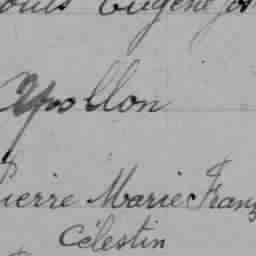 Louis Eugène Jos
Apollon
Pierre Marie Franç
Célestin